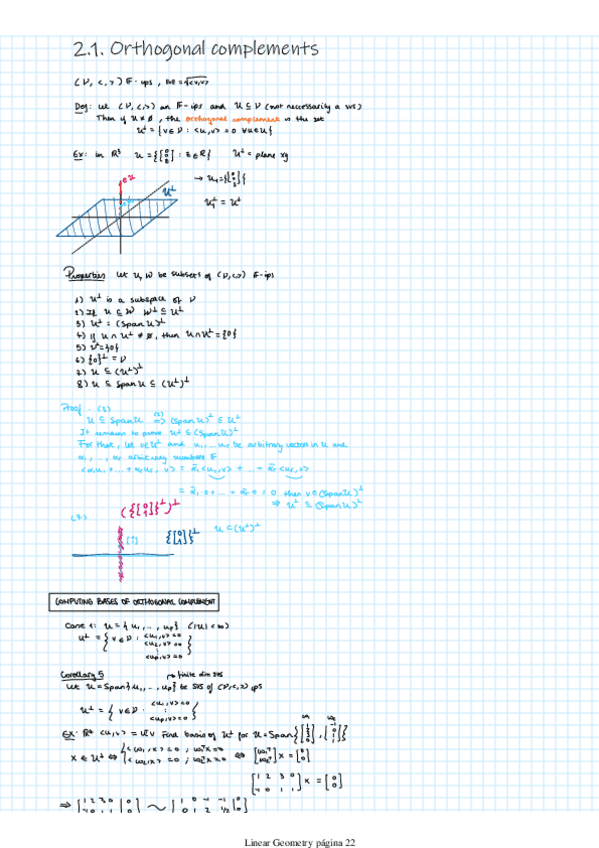 2.1. Orthogonal complements
(V, <,>) F-ips, ‖v‖ = √<v,v>
Def: Let (V, <,>) an F-ips and U ⊆ V (not necessarily a svs)
Then if U ≠ ∅, the orthogonal complement is the set
U⊥ = {v ∈ V : <u,v> = 0 ∀u∈U}
Ex: in R³ U = {[0 0 z] : z ∈ R} U⊥ = plane xy
U⊥
U₁⊥ = U⊥
Properties Let U, W be subsets of (V, <,>) F-ips
1) U⊥ is a subspace of V
2) If U ⊆ W W⊥ ⊆ U⊥
3) U⊥ = (Span U)⊥
4) if U ∩ U⊥ ≠ ∅, then U∩U⊥ = {0}
5) V⊥ = {0}
6) {0}⊥ = V
7) U ⊆ (U⊥)⊥
8) U ⊆ Span U ⊆ (U⊥)⊥
Proof. (3)
U ⊆ Span U (2) ⇒ (Span U)⊥ ⊆ U⊥
It remains to prove U⊥ ⊆ (Span U)⊥
For that, let v∈U⊥ and u₁, ... ur be arbitrary vectors in U and
α₁, .., αr arbitrary numbers F
<α₁u₁ + ... + αrur, v> = ᾱ₁<u₁,v> + ... + ᾱr<ur,v>
= ᾱ₁·0 + ... + ᾱr·0 = 0 then v∈(Span U)⊥
⇒ U⊥ ⊆ (Span U)⊥
({[0 1]}⊥)⊥
(7.)
[0 1] {[0 1]}⊥ U ⊂ (U⊥)⊥
COMPUTING BASES OF ORTHOGONAL COMPLEMENT
Case 1: U = {u₁, .., up} (|U| < ∞)
U⊥ = {v ∈ V : <u₁,v>=0 <u₂,v>=0 ⋮ <up,v>=0}
Corollary 5 → finite dim svs
Let U = Span{u₁, .., up} be svs of (V, <,>) ips
U⊥ = {v∈V : <u₁,v>=0 ⋮ <up,v>=0}
Find basis of U⊥ for U = Span
x ∈ U⊥ ⇔
[1 2 3 0 / -1 0 1 1] x = [0 0]
Linear Geometry página 22